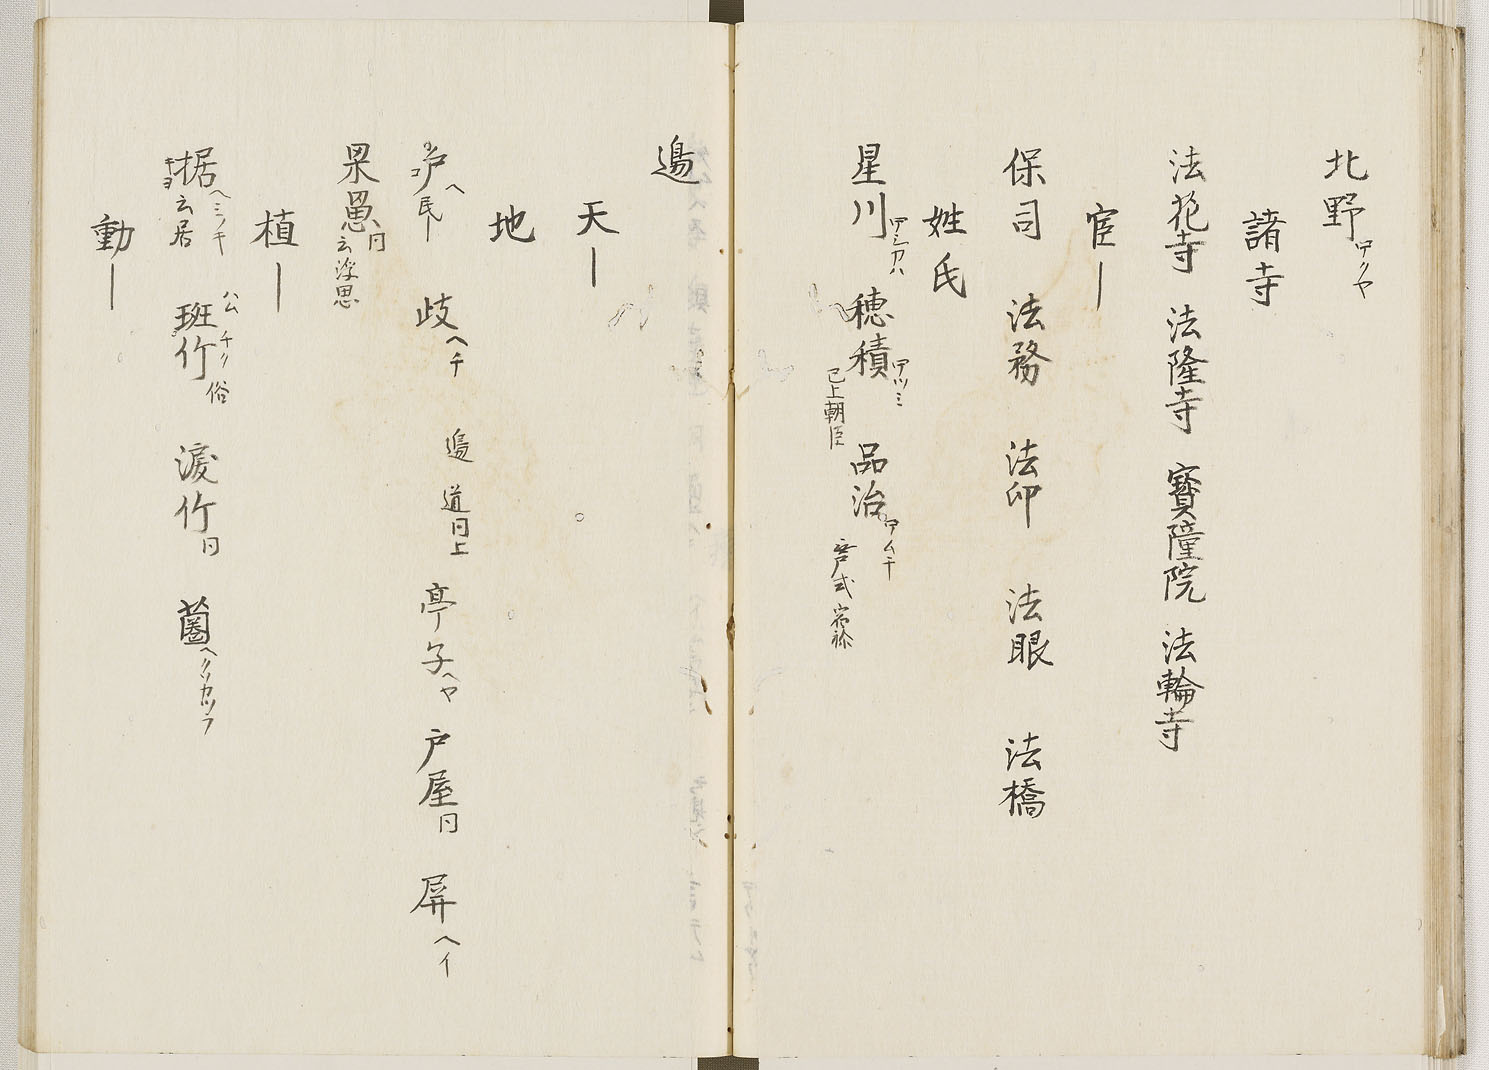 北野 ホクヤ
諸寺
法花寺 法隆寺 寳幢院 法輪寺
官｜
保司 法務 法印 法眼 法橋
姓氏
星川 ホシカハ 穂積 ホツミ 已上朝臣 品治 ホムチ 宿祢
邉
天｜
地
戸 ヘ 民｜ 歧 ヘチ 邉 道 同上 亭子 ヘヤ 戸屋 同 屏 ヘイ
罘罳 同 云浮思
植｜
椐 ヘミノキ 云居 班竹 チク 俗 涙竹 同 ヘクソカツラ
動｜